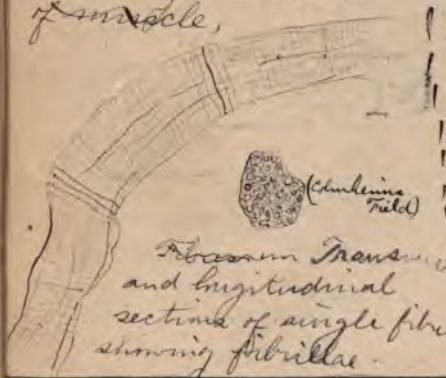 of muscle,
(Cohnheims
Field)
Transver
and longitudinal
sections of single fibre
showing fibrillae.